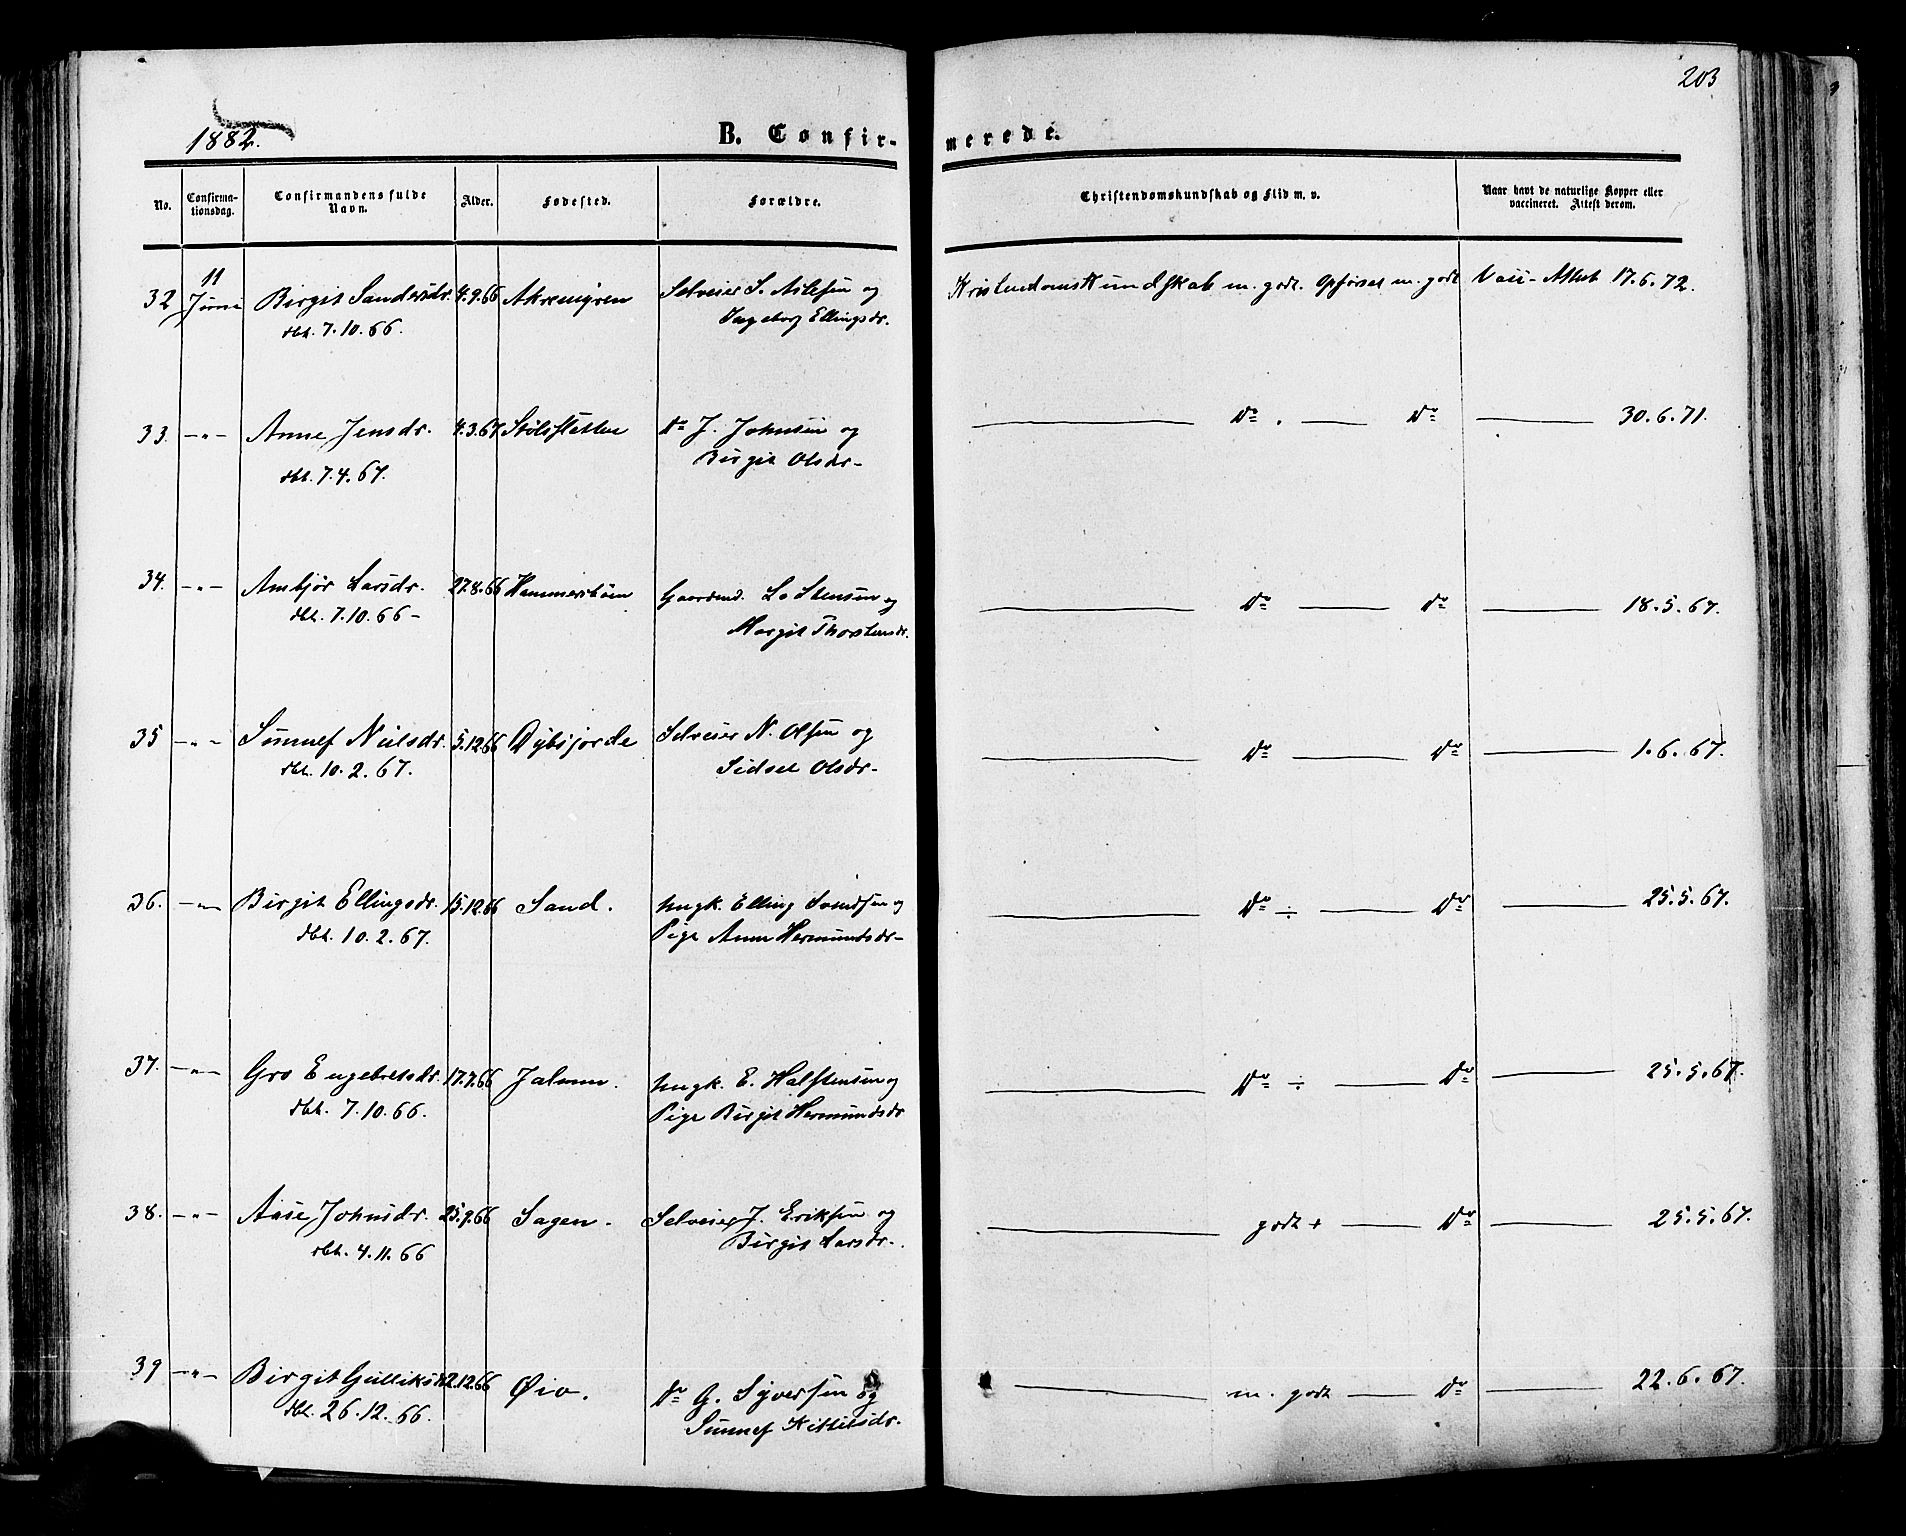 203
1882.
B. Confir- merede.
No. Confirma-tionsdag. Confirmandens fulde Navn. Alder. Fødested. Forældre. Christendomskundskab og Flid m. v. Naar havt de naturlige Kopper eller vaccineret. Attest derom.
32 11 Juni Birgit Sandersdr. 4.9.66 Selveier S. Aslesen og Kristendomskundskab m. godt. Opførsel m. godt Vacc-Attest 17.6.72.
dbt. 7.10.66. Ingeborg Ellingsdr.
33. —"— Anne Jensdr. 4.3.67 Do J. Johnsen og Do. — Do — 30.6.71.
dbt. 7.4.67. Birgit Olsdr-
34. —"— Ambjør Larsdr. 27.8.66 Hammersbøen Gaardmd. L. Stensen og Do — Do — 18.5.67.
dbt. 7.10.66- Margit Thorstensdr.
35 —"— Sunnef Nielsdr. 5.12.66 Dybsjorde Selveier N. Olsen og Do — Do — 1.6.67.
dbt. 10.2.67. Sidsel Olsdr-
36. —"— Birgit Ellingsdr. 15.12.66 Sand. Ungk. Elling Svendsen og Do ÷ — Do — 25.5.67.
dbt. 10.2.67. Pige Anne Hermundsdr-
37. —"— Gro Engebretsdr. 17.7.66 Ungk. E. Halstensen og Do ÷ — Do — 25.5.67.
dbt. 7.10.66. Pige Birgit Hermundsdr
38. —"— Aase Johnsdr. 25.9.66 Sagen. Selveier J. Eriksen og godt + — Do — 25.5.67.
dbt. 4.11.66 Birgit Larsdr.
39 —"— Birgit Gulliksdr 2.12.66 Øio. Do G. Syversen og — m. godt — Do — 22.6.67.
dbt. 26.12.66. Sunnef Kittilsdr.